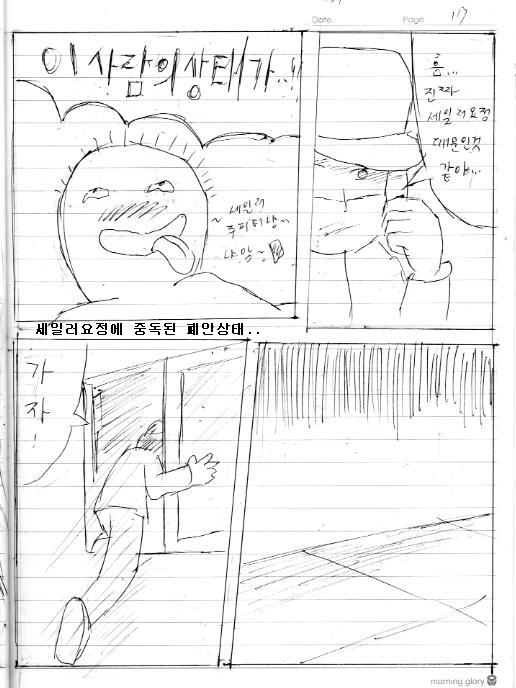 Date.
Page. 117
이 사람의 상태가..!!
흠...
진짜
세일러요정
때문인것
같아...
~ 세일러
쥬피터냥~
냐암~
세일러요정에 중독된 페인상태..
가
자
!
morning glory